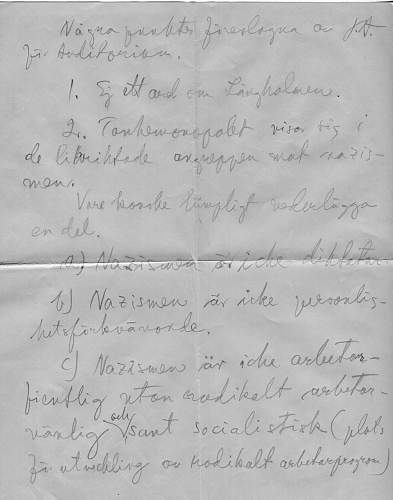 Några punkter föreslagna av J.H.
för Auditorium.
1. Ej ett ord om Långholmen.
2. Tankemonopolet visar sig i
de likriktade angreppen mot nazis-
men.
Vore kanske lämpligt vederlägga
en del.
a) Nazismen är icke diktatur
b) Nazismen är icke personlig-
hetsförkvävande.
c) Nazismen är icke arbetar-
fientlig utan radikalt arbetar-
vänlig och sant socialistisk (plats
för utveckling av radikalt arbetarprogram)